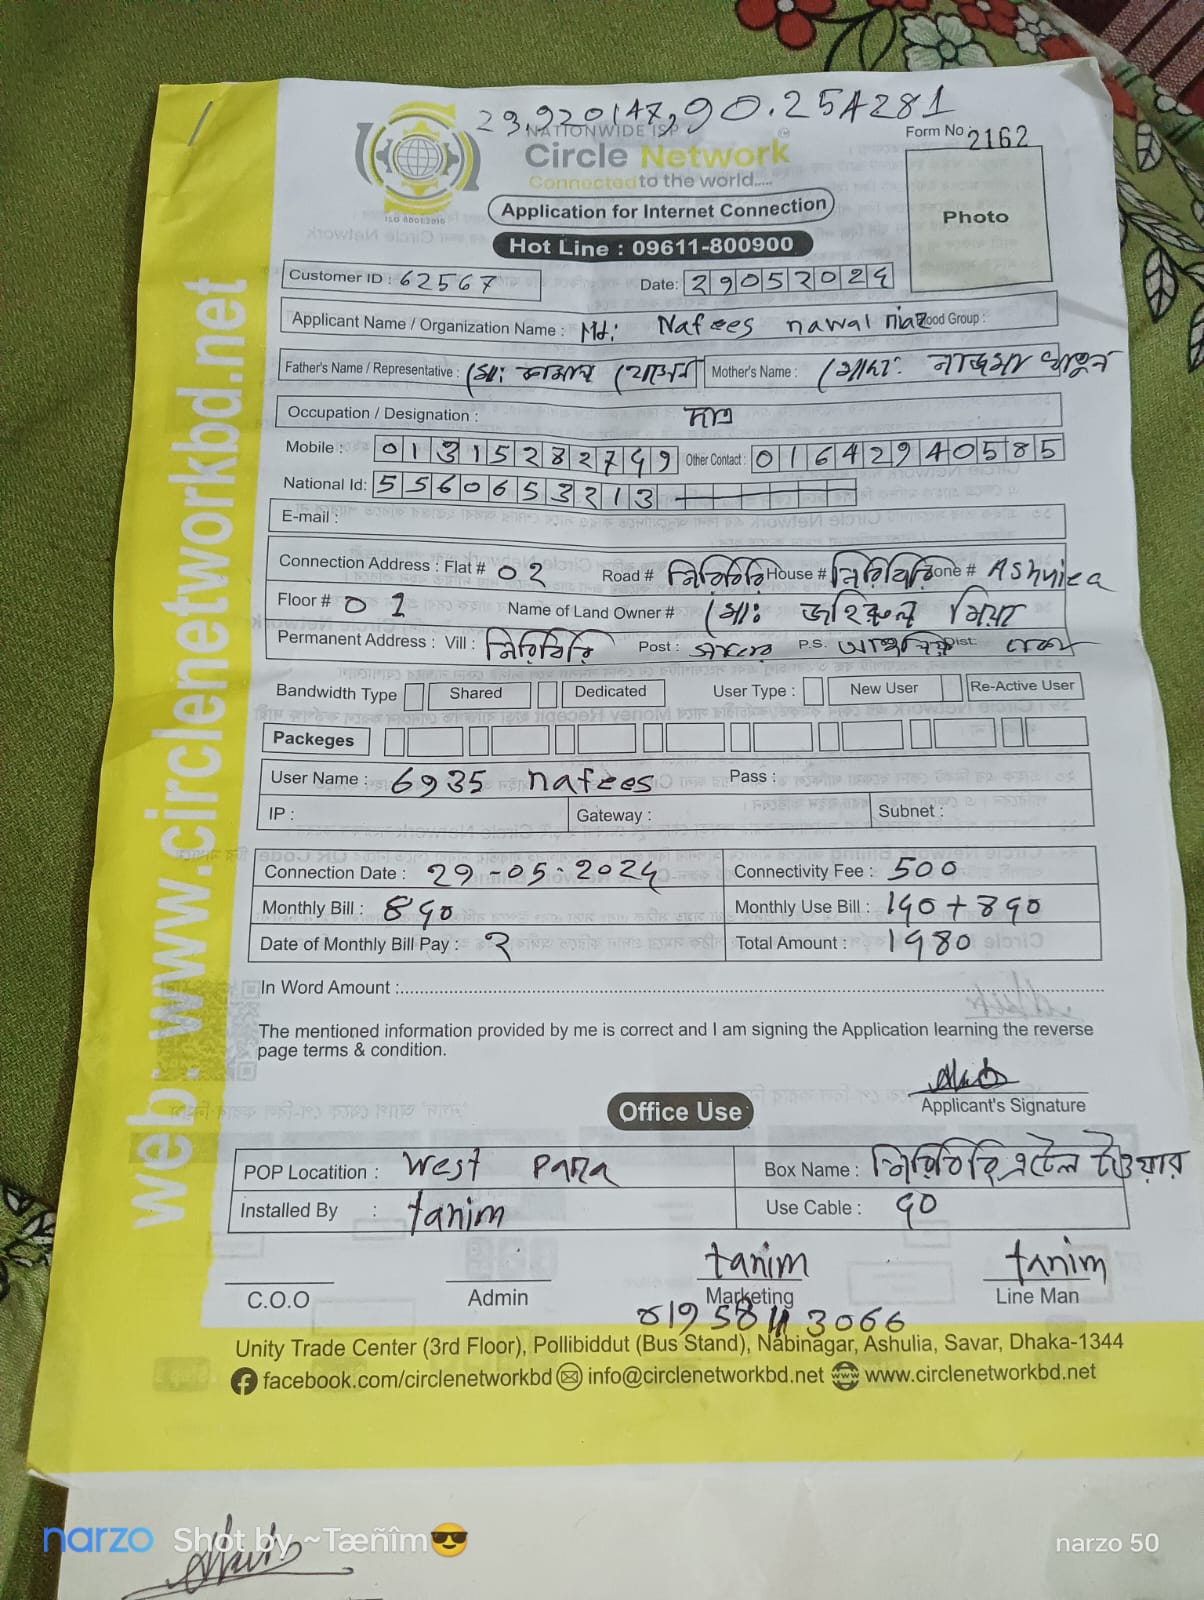 23.920147,90.254281
NATIONWIDE ISP
Circle Network
Connected to the world.....
ISO 9001:2015
Form No : 2162
Photo
Application for Internet Connection
Hot Line : 09611-800900
Customer ID : 62567 Date: 29052024
Applicant Name / Organization Name : Md: Nafees nawal niaz ood Group :
Father's Name / Representative : মো: কামাল হোসেন Mother's Name : মোছা: নাজমা খাতুন
Occupation / Designation : ছাত্র
Mobile : 01315282749 Other Contact : 01642940585
National Id: 5560653213
E-mail :
Connection Address : Flat # 02 Road # নিরিবিলি House # নিরিবিলি one # Ashulea
Floor # 01 Name of Land Owner # মো: জহিরুল মিয়া
Permanent Address : Vill : নিরিবিলি Post : সাভার P.S. আশুলিয়া Dist: ঢাকা
Bandwidth Type Shared Dedicated User Type : New User Re-Active User
Packeges
User Name : 6935 nafees Pass :
IP : Gateway : Subnet :
Connection Date : 29-05-2024 Connectivity Fee : 500
Monthly Bill : 840 Monthly Use Bill : 140+840
Date of Monthly Bill Pay : 2 Total Amount : 1480
In Word Amount :
The mentioned information provided by me is correct and I am signing the Application learning the reverse
page terms & condition.
Applicant's Signature
Office Use
POP Locatition : West Para Box Name : নিরিবিলি এটেল টাওয়ার
Installed By : tanim Use Cable : 90
tanim tanim
C.O.O Admin Marketing Line Man
Unity Trade Center (3rd Floor), Pollibiddut (Bus Stand), Nabinagar, Ashulia, Savar, Dhaka-1344
facebook.com/circlenetworkbd info@circlenetworkbd.net www.circlenetworkbd.net
web : www.circlenetworkbd.net
narzo Shot by ~Tæñîm😎 narzo 50